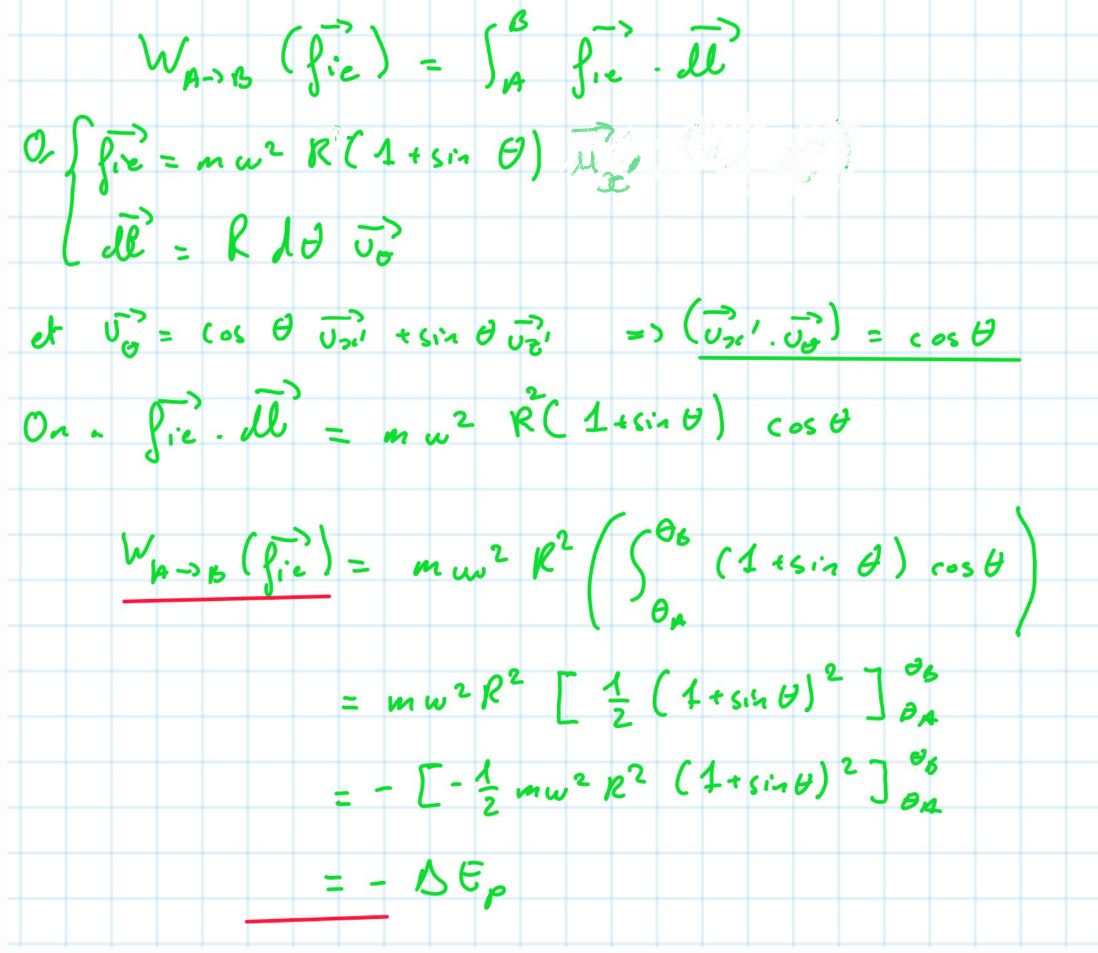 W_{A→B} (\vec{f_{ie}}) = ∫_A^B \vec{f_{ie}} . \vec{dl}
O { \vec{f_{ie}} = m ω² R (1 + sin θ) \vec{u_x}
\vec{dl} = R dθ \vec{u_θ}
et \vec{u_θ} = cos θ \vec{u_{x'}} + sin θ \vec{u_{z'}} => (\vec{u_{x'}} . \vec{u_θ}) = cos θ
On a \vec{f_{ie}} . \vec{dl} = m ω² R² (1 + sin θ) cos θ
W_{A→B} (\vec{f_{ie}}) = m ω² R² ( ∫_{θ_A}^{θ_B} (1 + sin θ) cos θ )
= m ω² R² [ 1/2 (1 + sin θ)² ]_{θ_A}^{θ_B}
= - [ - 1/2 m ω² R² (1 + sin θ)² ]_{θ_A}^{θ_B}
= - Δ E_p